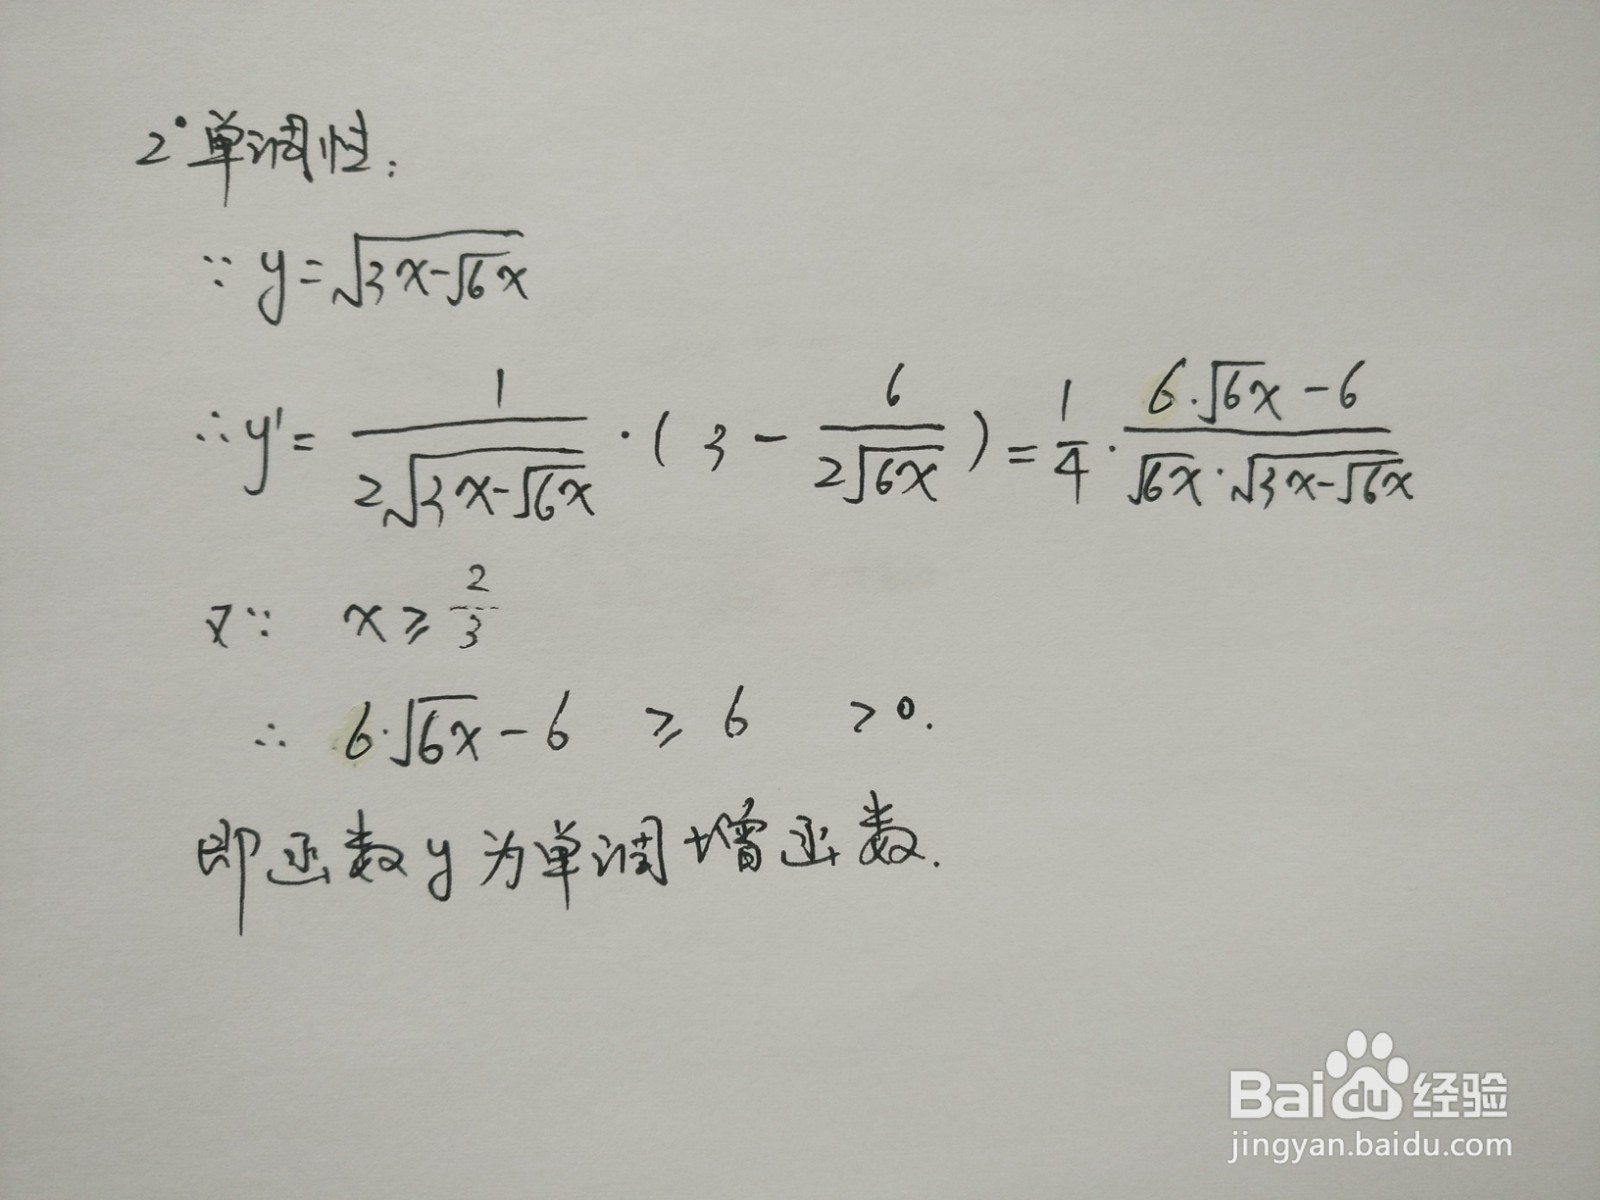 2°单调性:
∵ y=√(3x-√6x)
∴ y'= 1/(2√(3x-√6x)) · (3 - 6/(2√6x)) = 1/4 · (6·√6x - 6)/(√6x · √(3x-√6x))
又∵ x ≥ 2/3
∴ 6·√6x - 6 ≥ 6 > 0.
即函数y为单调增函数.
Baidu经验
jingyan.baidu.com